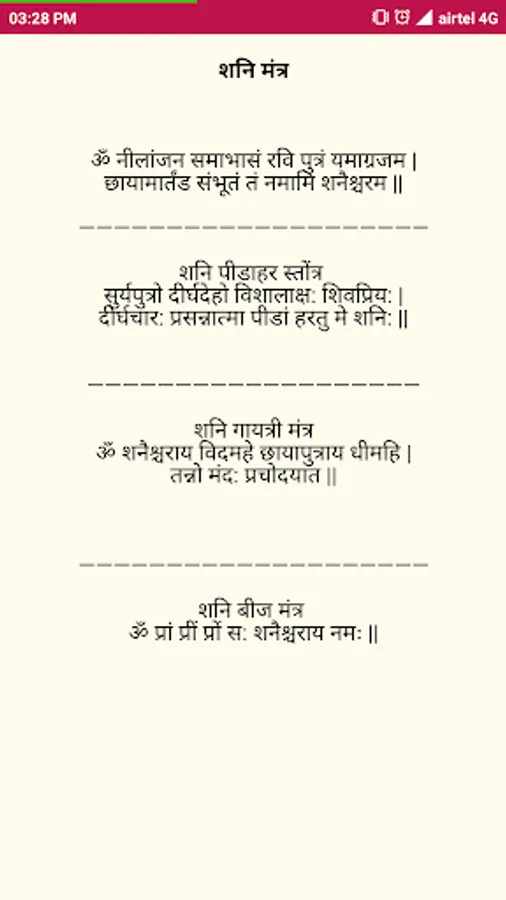 03:28 PM airtel 4G
शनि मंत्र
ॐ नीलांजन समाभासं रवि पुत्रं यमाग्रजम |
छायामार्तंड संभूतं तं नमामि शनैश्चरम ||
____________________
शनि पीडाहर स्तोंत्र
सुर्यपुत्रो दीर्घदेहो विशालाक्ष: शिवप्रिय: |
दीर्घचार: प्रसन्नात्मा पीडां हरतु मे शनि: ||
___________________
शनि गायत्री मंत्र
ॐ शनैश्चराय विदमहे छायापुत्राय धीमहि |
तन्नो मंद: प्रचोदयात ||
____________________
शनि बीज मंत्र
ॐ प्रां प्रीं प्रों स: शनैश्चराय नमः ||